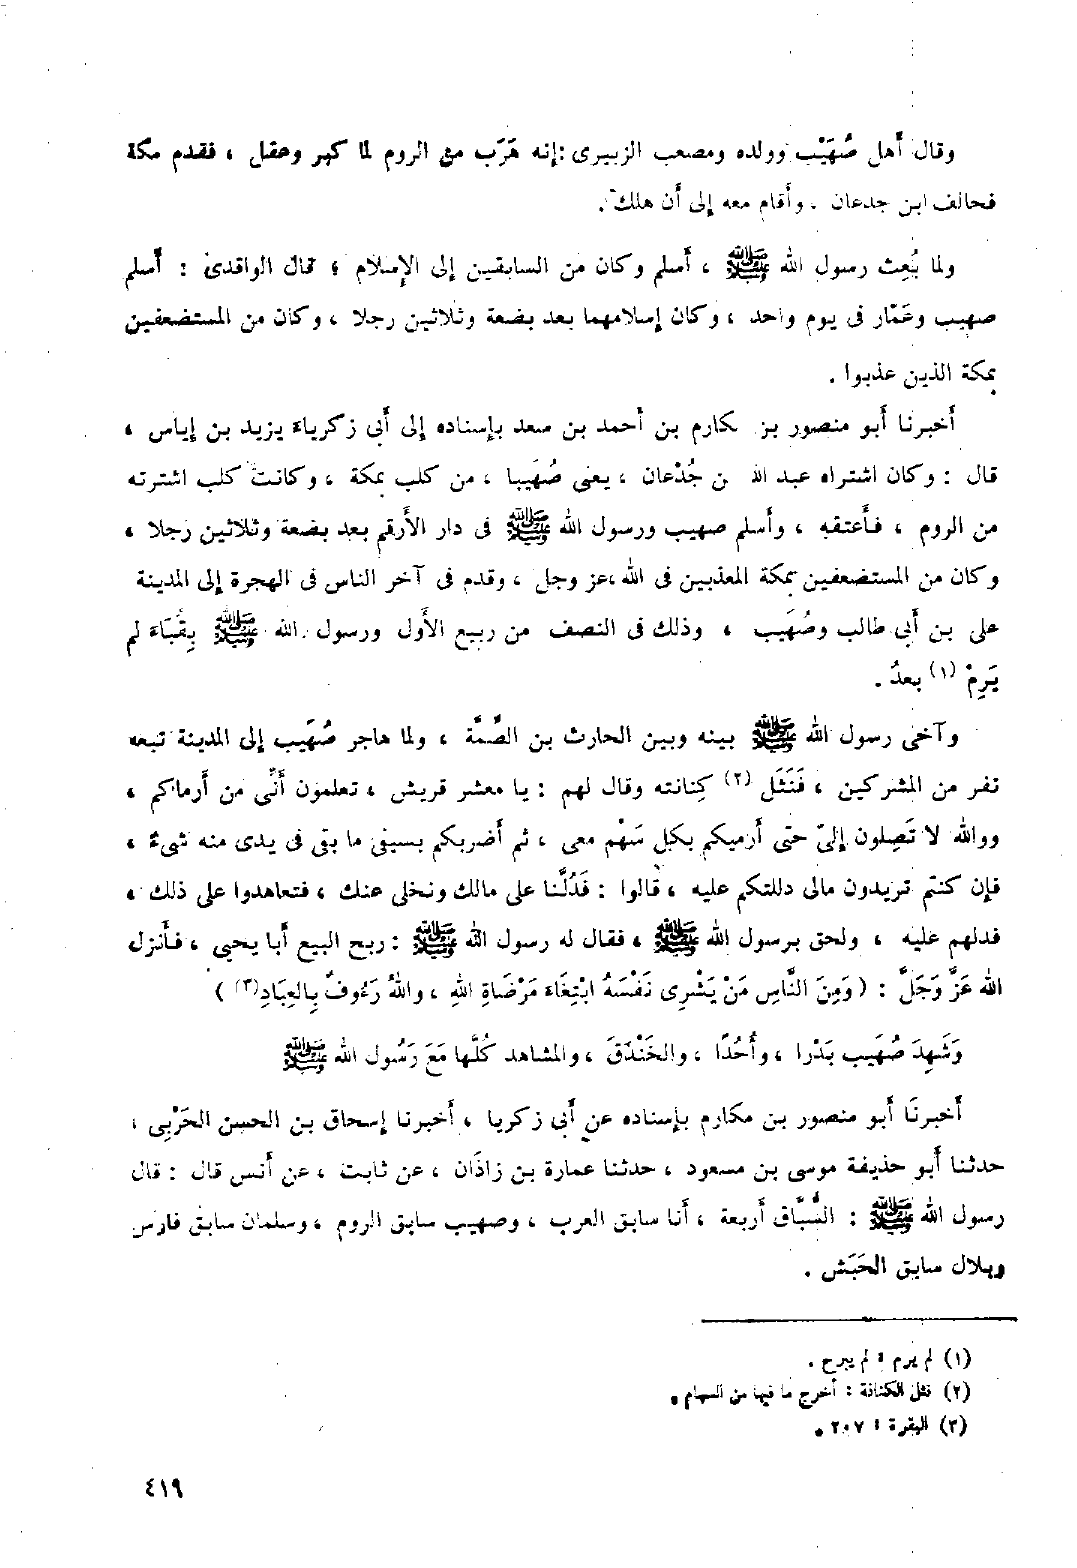 وقال أهل صُهَيْب وولده ومصعب الزبيرى : إنه هَرَب مع الروم لما كبر وعقل ، فقدم مكة
فحالف ابن جدعان ، وأقام معه إلى أن هلك .
ولما بُعِث رسول الله ﷺ ، أسلم وكان من السابقين إلى الإسلام ؛ قال الواقدى : أسلم
صهيب وعَمّار فى يوم واحد ، وكان إسلامهما بعد بضعة وثلاثين رجلا ، وكان من المستضعفين
بمكة الذين عذبوا .
أخبرنا أبو منصور بن مكارم بن أحمد بن سعد بإسناده إلى أبى زكرياء يزيد بن إياس ،
قال : وكان اشتراه عبد الله بن جُدْعان ، يعنى صُهَيبا ، من كلب بمكة ، وكانت كلب اشترته
من الروم ، فأعتقه ، وأسلم صهيب ورسول الله ﷺ فى دار الأرقم بعد بضعة وثلاثين رجلا ،
وكان من المستضعفين بمكة المعذبين فى الله ، عز وجل ، وقدم فى آخر الناس فى الهجرة إلى المدينة
على بن أبى طالب وصُهَيب ، وذلك فى النصف من ربيع الأول ورسول الله ﷺ بِقُبَاءَ لم
يَرِمْ (١) بعدُ .
وآخى رسول الله ﷺ بينه وبين الحارث بن الصِّمَّة ، ولما هاجر صُهَيب إلى المدينة تبعه
نفر من المشركين ، فَنَثَل (٢) كِنانته وقال لهم : يا معشر قريش ، تعلمون أنِّى من أرماكم ،
ووالله لا تَصِلون إلىّ حتى أرميكم بكل سَهْم معى ، ثم أضربكم بسيفى ما بقى فى يدى منه شىءٌ ،
فإن كنتم تريدون مالى دللتكم عليه ، قالوا : فَدُلَّنا على مالك ونخلى عنك ، فتعاهدوا على ذلك ،
فدلهم عليه ، ولحق برسول الله ﷺ ، فقال له رسول الله ﷺ : ربح البيع أبا يحيى ، فأنزل
الله عَزَّ وَجَلَّ : ( وَمِنَ النَّاسِ مَنْ يَشْرِى نَفْسَهُ ابْتِغَاءَ مَرْضَاةِ اللهِ ، واللهُ رَءُوفٌ بِالعِبَادِ(٣) )
وَشَهِدَ صُهَيب بَدْرا ، وأُحُدًا ، والخَنْدَقَ ، والمشاهد كُلَّها مَعَ رَسُول الله ﷺ
أخبرنَا أبو منصور بن مكارم بإسناده عن أبى زكريا ، أخبرنا إسحاق بن الحسن الحَرْبِى ،
حدثنا أبو حذيفة موسى بن مسعود ، حدثنا عمارة بن زاذَان ، عن ثابت ، عن أنس قال : قال
رسول الله ﷺ : السُّبَّاق أربعة ، أنا سابق العرب ، وصهيب سابق الروم ، وسلمان سابق فارس
وبلال سابق الحَبَش .
(١) لم يرم : لم يبرح .
(٢) نثل الكنانة : أخرج ما فيها من السهام .
(٣) البقرة : ٢٠٧ .
٤١٩